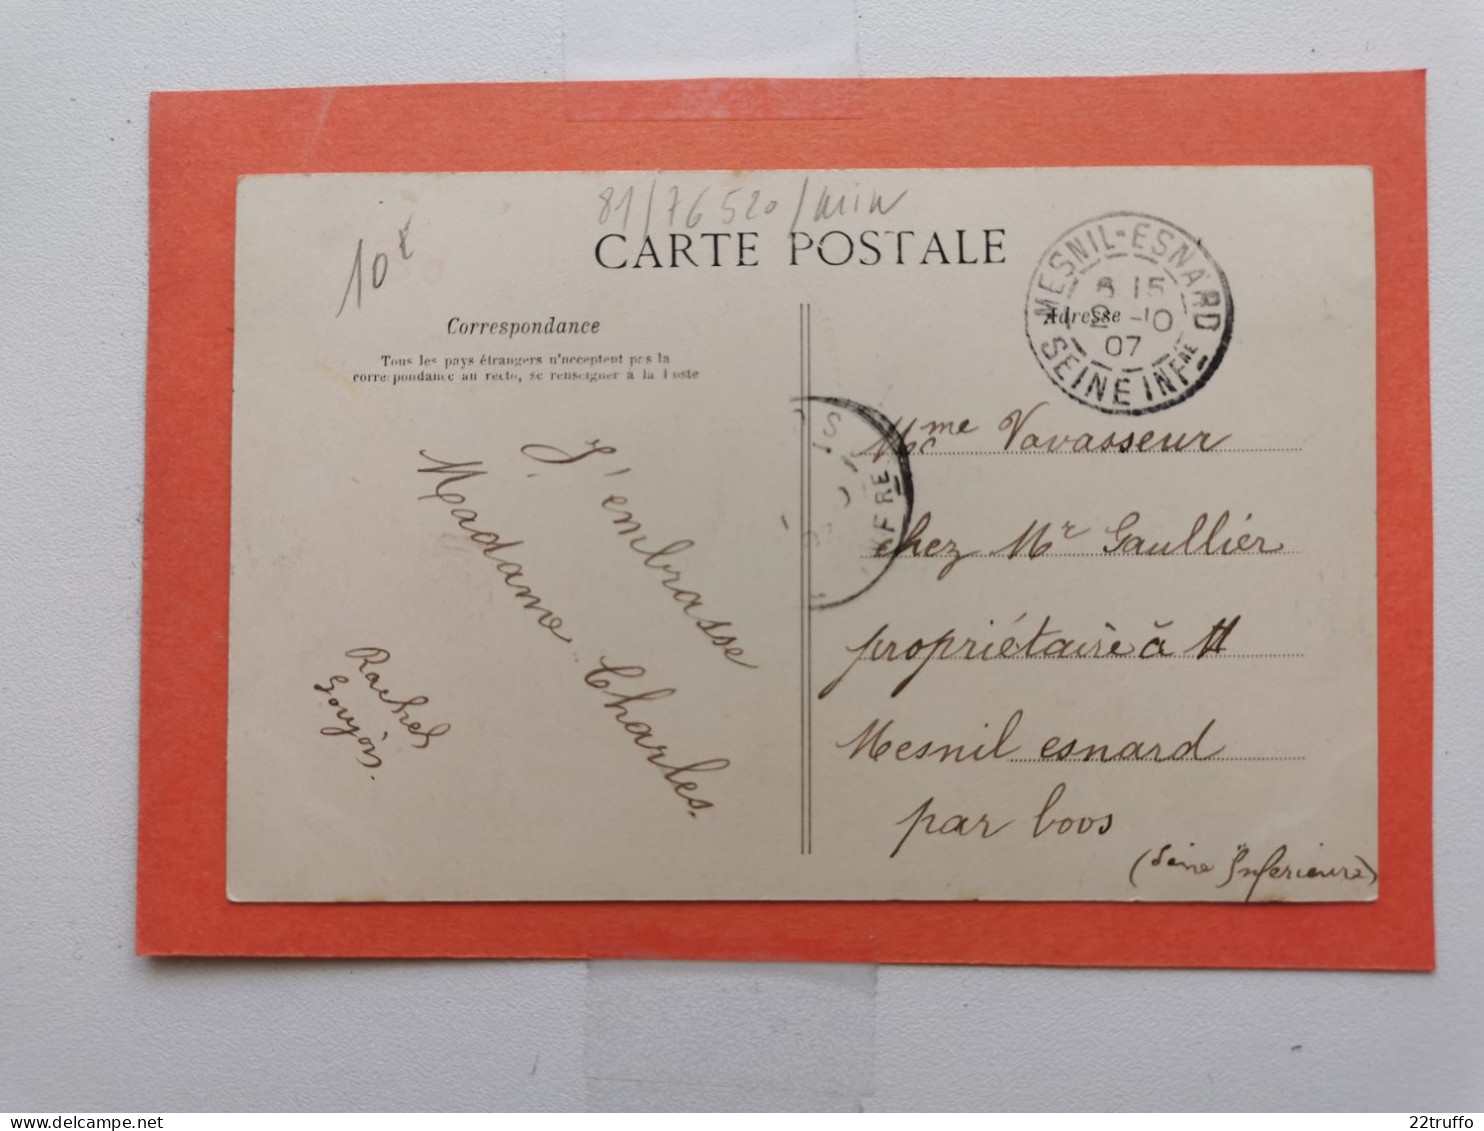 81/76520/min
10€
CARTE POSTALE
Correspondance
Tous les pays étrangers n'acceptent pas la
correspondance au recto, se renseigner à la Poste
Adresse
MESNIL-ESNARD
8 15
2 -10
07
SEINE INFRE
J'embrasse
Madame Charles.
Rachel
Goujon.
Mme Vavasseur
chez Mr Gaullier
propriétaire à
Mesnil esnard
par boos
(Seine Inferieure)
22truffo
delcampe.net